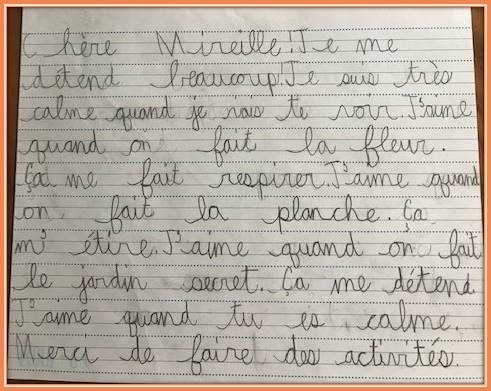 Chère Mireille! Je me
détend beaucoup! Je suis très
calme quand je vais te voir. J'aime
quand on fait la fleur.
Ça me fait respirer. J'aime quand
on fait la planche. Ça
m'étire. J'aime quand on fait
le jardin secret. Ça me détend.
J'aime quand tu es calme.
Merci de faire des activités.